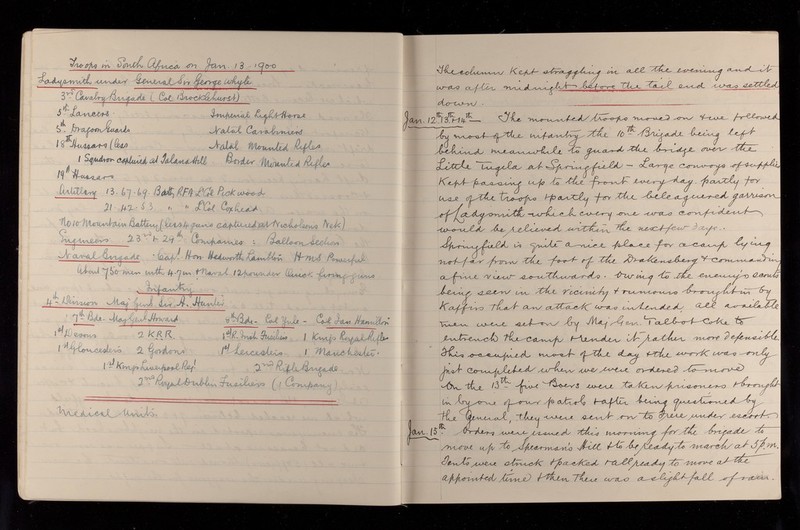 Troops in South Africa on Jan. 13. 1900
Ladysmith under General Sir George Whyte
3rd Cavalry Brigade (Col Brocklehurst)
5th Lancers Imperial Light Horse
5th Dragoon Guards Natal Carabineers
18th Hussars (less Natal Mounted Rifles
1 Squadron captured at Talana Hill Border Mounted Rifles
19th Hussars
Artillery 13. 67. 69. Batty RFA Lt Col Pickwood
21. 42. 53 " " Lt Col Coxhead
No 10 Mountain Battery (less 4 guns captured at Nicholsons Nek)
Engineers 23rd & 24th Companies : Balloon Section
Naval Brigade - Capt Hon Hedworth Lambton H.M.S. Powerful
About 750 men with 4.7 in & Naval 12 pounder Quick firing guns
Infantry
4th Division Maj Genl Sir A. Hunter
7th Bde - Maj Genl Howard 8th Bde - Col Yule - Col Ian Hamilton
1st Devons 2 K.R.R. 1st R. Irish Fusiliers 1 Kings Royal Rifles
1st Gloucesters 2 Gordons 1st Leicesters 1 Manchester.
1st Kings Liverpool Regt 2nd Rifle Brigade.
2nd Royal Dublin Fusiliers (1 Company)
Medical Units
The column kept straggling in all the evening and it
was after midnight before the tail end was settled
down.
Jan. 12th 13th & 14th The mounted troops moved on & we followed
by most of the infantry, the 10th Brigade being left
behind meanwhile to guard the bridge over the
Little Tugela at Springfield - Large convoys of supplies
kept passing up to the front every day partly for
use of the troops & partly for the beleaguered garrison
of Ladysmith which every one was confident
would be relieved within the next few days.
Springfield is quite a nice place for a camp lying
not far from the foot of the Drakensberg & commanding
a fine view southwards. Owing to the enemy's scouts
being seen in the vicinity & rumours brought in by
Kaffirs that an attack was intended, all available
men were set on by Maj Gen. Talbot Coke to
entrench the camp & render it rather more defensible.
This occupied most of the day & the work was only
just completed when we were ordered to move
On the 13th five Boers were taken prisoners & brought
in by one of our patrols & after being questioned by
the General, they were sent on to Frere under escort
Jan. 15th Orders were issued this morning for the brigade to
move up to Spearman's Hill & to be ready to march at 5 p.m.
Tents were struck & packed & all ready to move at the
appointed time & then there was a slight fall of rain.